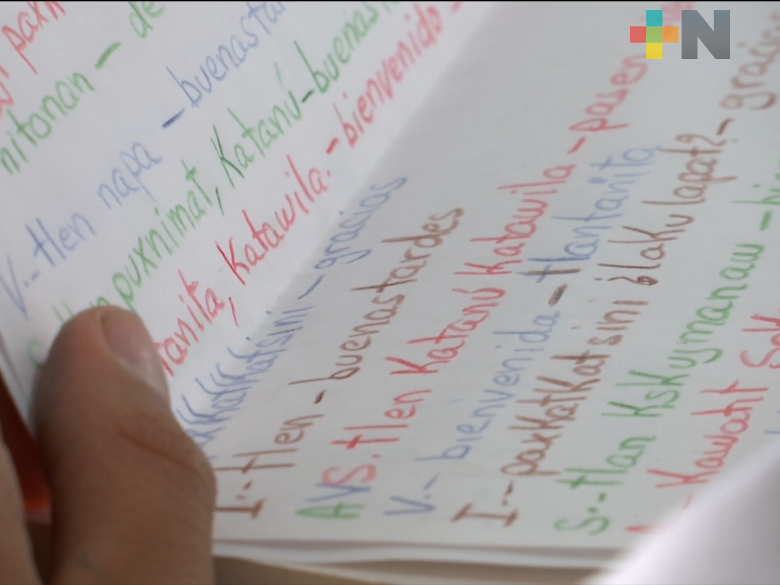 +N
nitonan - de
V.- tlen napa - buenasta
puxnimat, Katanú - buenas
tanita, Katawila. - bienvenido -
Katsini - gracias
I.- tlen - buenas tardes
AVS. tlen Katanú Katawila - pasen
V.- bienvenida - tlantanita
I.- paxKatKatsini ¿laKu lapat? - gracias
S.- tlan KsKujmanaw - bie
Kawanit